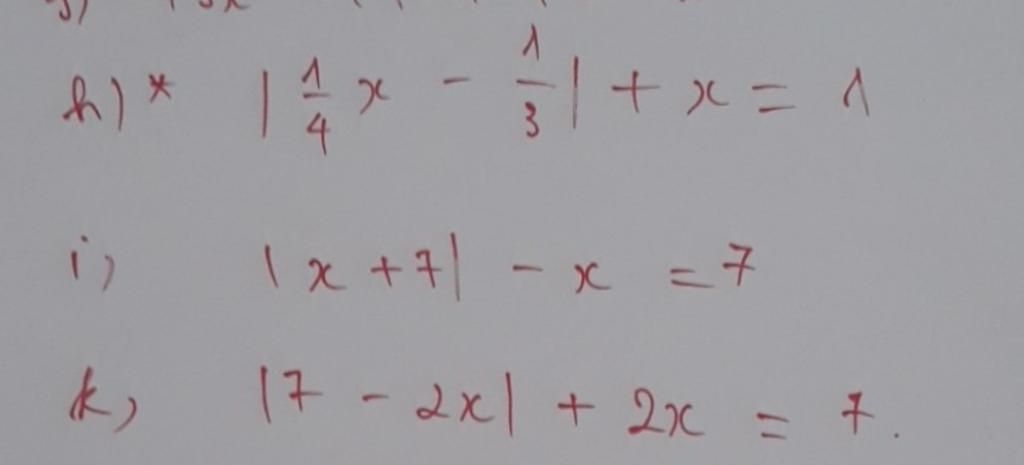 h)* |1/4 x - 1/3| + x = 1
i, |x + 7| - x = 7
k, |7 - 2x| + 2x = 7.